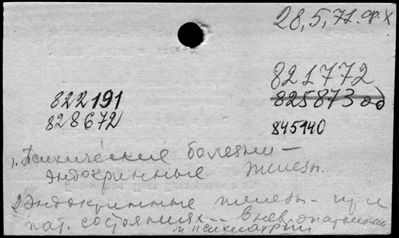 28,5,71.
821772
822191
825873
828672
845140
1. Психические болезни —
эндокринные железы.
2) Эндокринные железы — при
пат. состояниях —
и психиатрии